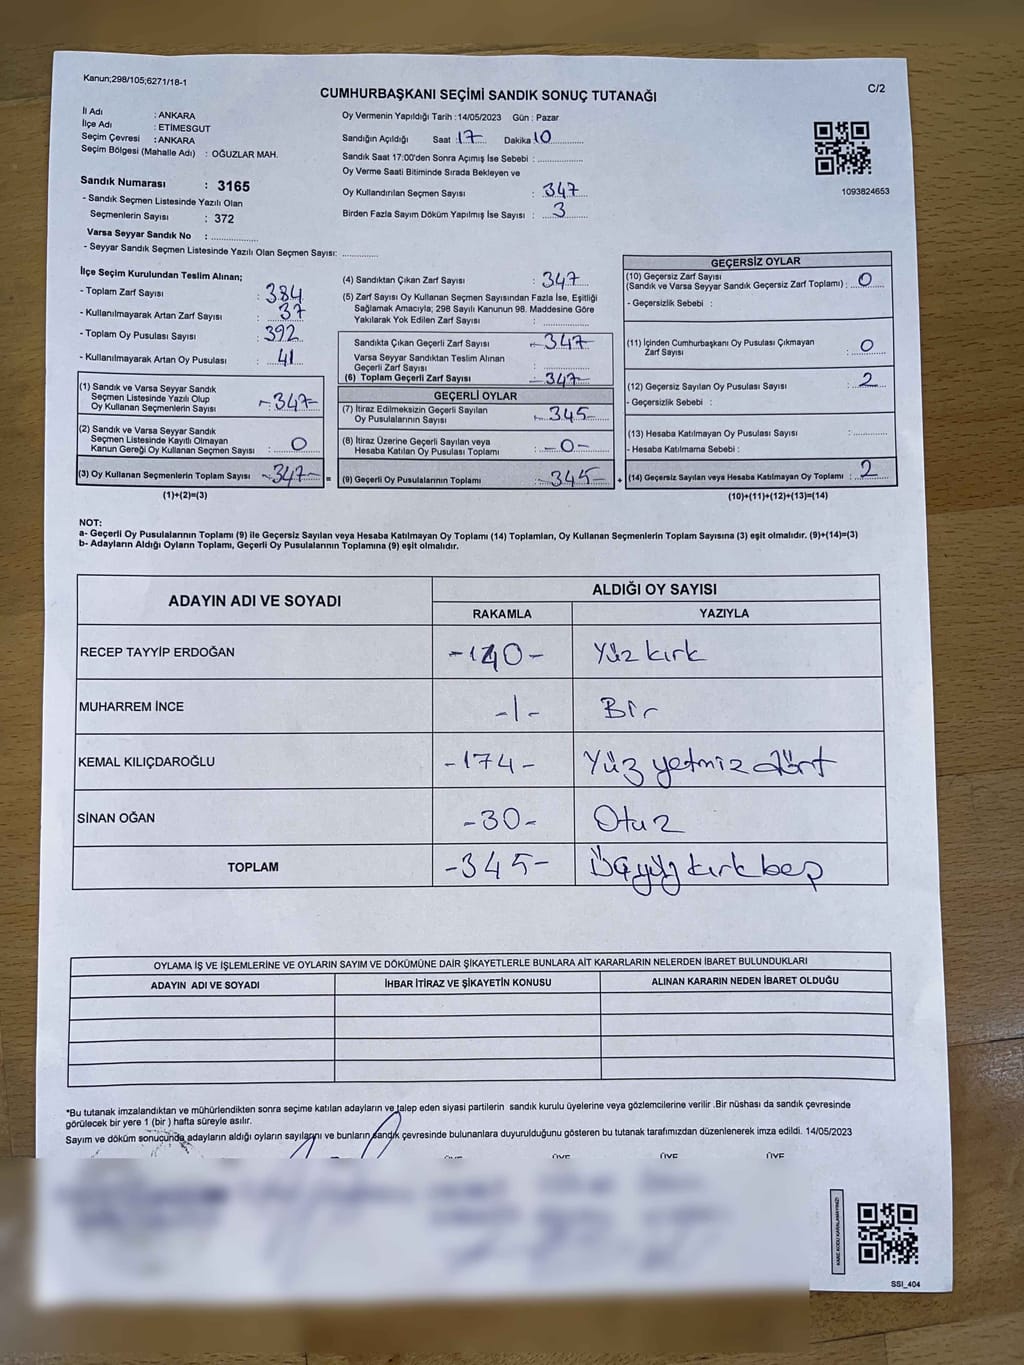 Kanun;298/105;6271/18-1
C/2
CUMHURBAŞKANI SEÇİMİ SANDIK SONUÇ TUTANAĞI
İl Adı : ANKARA
İlçe Adı : ETİMESGUT
Seçim Çevresi : ANKARA
Seçim Bölgesi (Mahalle Adı) : OĞUZLAR MAH.
Sandık Numarası : 3165
- Sandık Seçmen Listesinde Yazılı Olan
Seçmenlerin Sayısı : 372
Varsa Seyyar Sandık No :
- Seyyar Sandık Seçmen Listesinde Yazılı Olan Seçmen Sayısı:
Oy Vermenin Yapıldığı Tarih :14/05/2023 Gün : Pazar
Sandığın Açıldığı Saat 17 Dakika 10
Sandık Saat 17:00'den Sonra Açımış İse Sebebi :
Oy Verme Saati Bitiminde Sırada Bekleyen ve
Oy Kullandırılan Seçmen Sayısı : 347
Birden Fazla Sayım Döküm Yapılmış İse Sayısı : 3
1093824653
İlçe Seçim Kurulundan Teslim Alınan;
- Toplam Zarf Sayısı : 384
- Kullanılmayarak Artan Zarf Sayısı : 37
- Toplam Oy Pusulası Sayısı : 392
- Kullanılmayarak Artan Oy Pusulası : 41
(1) Sandık ve Varsa Seyyar Sandık
Seçmen Listesinde Yazılı Olup
Oy Kullanan Seçmenlerin Sayısı : -347-
(2) Sandık ve Varsa Seyyar Sandık
Seçmen Listesinde Kayıtlı Olmayan
Kanun Gereği Oy Kullanan Seçmen Sayısı : 0
(3) Oy Kullanan Seçmenlerin Toplam Sayısı -347- =
(1)+(2)=(3)
(4) Sandıktan Çıkan Zarf Sayısı : 347
(5) Zarf Sayısı Oy Kullanan Seçmen Sayısından Fazla İse, Eşitliği
Sağlamak Amacıyla; 298 Sayılı Kanunun 98. Maddesine Göre
Yakılarak Yok Edilen Zarf Sayısı :
Sandıkta Çıkan Geçerli Zarf Sayısı : -347-
Varsa Seyyar Sandıktan Teslim Alınan
Geçerli Zarf Sayısı :
(6) Toplam Geçerli Zarf Sayısı -347-
GEÇERLİ OYLAR
(7) İtiraz Edilmeksizin Geçerli Sayılan
Oy Pusulalarının Sayısı : -345-
(8) İtiraz Üzerine Geçerli Sayılan veya
Hesaba Katılan Oy Pusulası Toplamı : -0-
(9) Geçerli Oy Pusulalarının Toplamı : -345- +
GEÇERSİZ OYLAR
(10) Geçersiz Zarf Sayısı
(Sandık ve Varsa Seyyar Sandık Geçersiz Zarf Toplamı) : 0
- Geçersizlik Sebebi :
(11) İçinden Cumhurbaşkanı Oy Pusulası Çıkmayan
Zarf Sayısı : 0
(12) Geçersiz Sayılan Oy Pusulası Sayısı : 2
- Geçersizlik Sebebi :
(13) Hesaba Katılmayan Oy Pusulası Sayısı :
- Hesaba Katılmama Sebebi :
(14) Geçersiz Sayılan veya Hesaba Katılmayan Oy Toplamı : 2
(10)+(11)+(12)+(13)=(14)
NOT:
a- Geçerli Oy Pusulalarının Toplamı (9) ile Geçersiz Sayılan veya Hesaba Katılmayan Oy Toplamı (14) Toplamları, Oy Kullanan Seçmenlerin Toplam Sayısına (3) eşit olmalıdır. (9)+(14)=(3)
b- Adayların Aldığı Oyların Toplamı, Geçerli Oy Pusulalarının Toplamına (9) eşit olmalıdır.
ADAYIN ADI VE SOYADI
ALDIĞI OY SAYISI
RAKAMLA YAZIYLA
RECEP TAYYİP ERDOĞAN -140- Yüz kırk
MUHARREM İNCE -1- Bir
KEMAL KILIÇDAROĞLU -174- Yüz yetmiz dört
SİNAN OĞAN -30- Otuz
TOPLAM -345- Üçyüz kırk beş
OYLAMA İŞ VE İŞLEMLERİNE VE OYLARIN SAYIM VE DÖKÜMÜNE DAİR ŞİKAYETLERLE BUNLARA AİT KARARLARIN NELERDEN İBARET BULUNDUKLARI
ADAYIN ADI VE SOYADI İHBAR İTİRAZ VE ŞİKAYETİN KONUSU ALINAN KARARIN NEDEN İBARET OLDUĞU
*Bu tutanak imzalandıktan ve mühürlendikten sonra seçime katılan adayların ve talep eden siyasi partilerin sandık kurulu üyelerine veya gözlemcilerine verilir .Bir nüshası da sandık çevresinde
görülecek bir yere 1 (bir ) hafta süreyle asılır.
Sayım ve döküm sonucunda adayların aldığı oyların sayılarını ve bunların sandık çevresinde bulunanlara duyurulduğunu gösteren bu tutanak tarafımızdan düzenlenerek imza edildi. 14/05/2023
ÜYE ÜYE ÜYE ÜYE
SSI_404